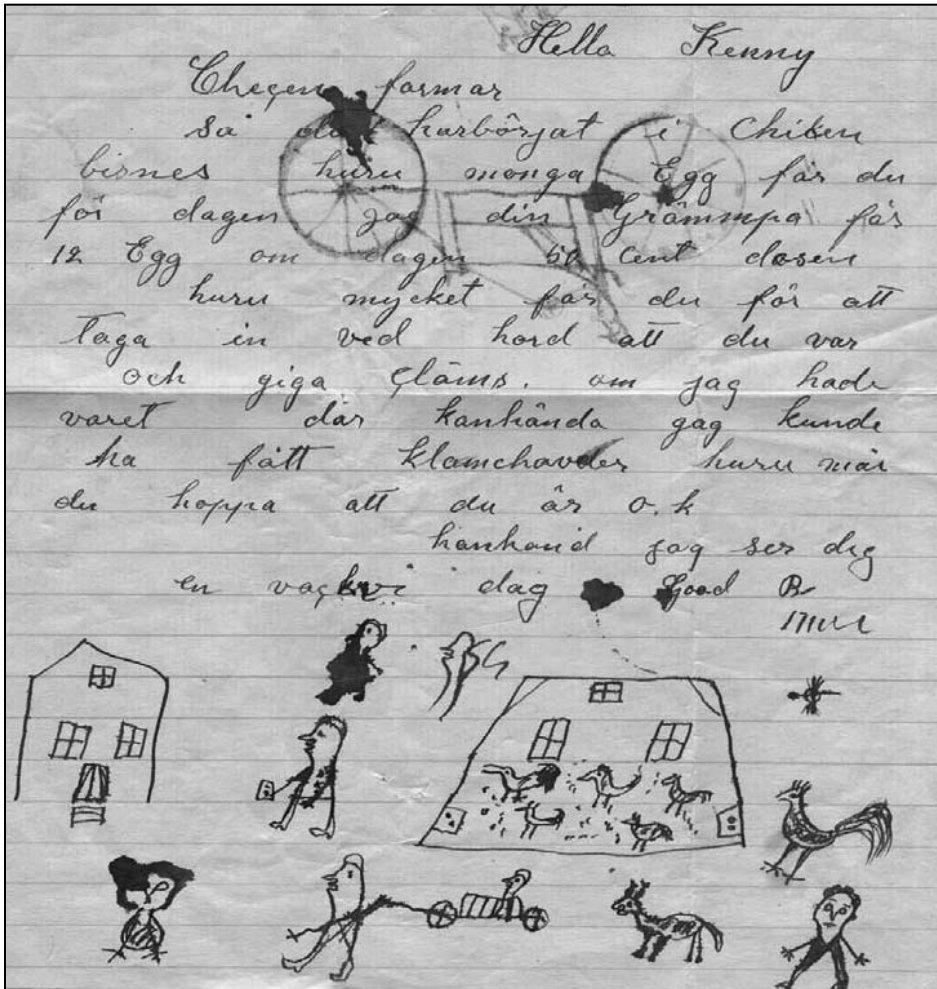 Hello Kenny
Checen farmar
så du harbörjat i Chiken
bisnes huru monga Egg får du
för dagen jag din Grämmpa får
12 Egg om dagen 50 Cent dosen
huru mycket får du för att
taga in ved hord att du var
och giga Cläms. om jag hade
varet där kanhända gag kunde
ha fått klamchavder huru mår
du hoppa att du är o.k
kanhand jag ser dig
en vacker dag Good B